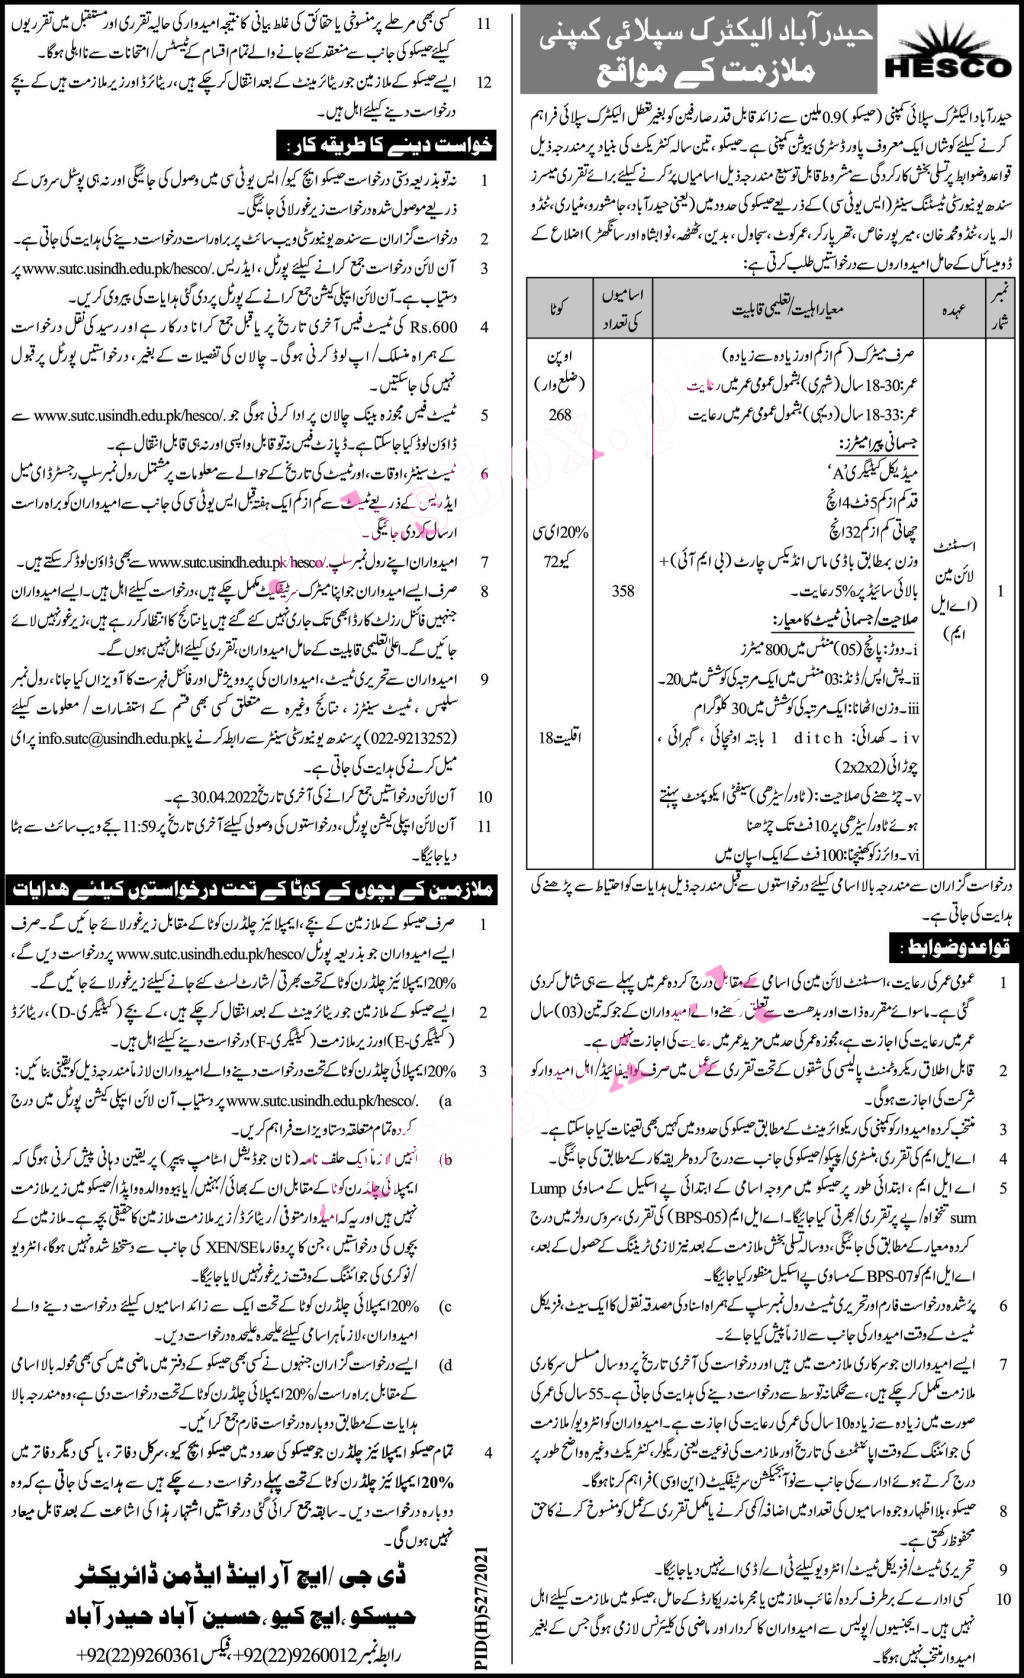 HESCO
حیدرآباد الیکٹرک سپلائی کمپنی
ملازمت کے مواقع
حیدرآباد الیکٹرک سپلائی کمپنی (حیسکو) 0.9 ملین سے زائد قابل قدر صارفین کو بغیر تعطل الیکٹرک سپلائی فراہم
کرنے کیلئے کوشاں ایک معروف پاور ڈسٹری بیوشن کمپنی ہے۔ حیسکو، تین سالہ کنٹریکٹ کی بنیاد پر مندرجہ ذیل
قواعد وضوابط پر تسلی بخش کارکردگی سے مشروط قابل توسیع مندرجہ ذیل اسامیاں پُر کرنے کیلئے برائے تقرری میسرز
سندھ یونیورسٹی ٹیسٹنگ سینٹر (ایس یو ٹی سی) کے ذریعے حیسکو کی حدود میں (یعنی حیدرآباد، جامشورو، مٹیاری، ٹنڈو
الہ یار، ٹنڈو محمد خان، میرپور خاص، تھرپارکر، عمرکوٹ، سجاول، بدین، ٹھٹھہ، نوابشاہ اور سانگھڑ) اضلاع کے
ڈومیسائل کے حامل امیدواروں سے درخواستیں طلب کرتی ہے:
نمبر شمار
عہدہ
معیار اہلیت/تعلیمی قابلیت
اسامیوں کی تعداد
کوٹا
1
اسسٹنٹ لائن مین (اے ایل ایم)
صرف میٹرک (کم از کم اور زیادہ سے زیادہ)
عمر: 18-30 سال (شہری) بشمول عمومی عمر میں رعایت
عمر: 18-33 سال (دیہی) بشمول عمومی عمر میں رعایت
جسمانی پیرامیٹرز:
میڈیکل کیٹیگری 'A'
قد کم از کم 5 فٹ 4 انچ
چھاتی کم از کم 32 انچ
وزن بمطابق باڈی ماس انڈیکس چارٹ (بی ایم آئی) +
بالائی سائیڈ پر 5% رعایت۔
صلاحیت/جسمانی ٹیسٹ کا معیار:
i۔ دوڑ: پانچ (05) منٹس میں 800 میٹرز
ii۔ پش اپس/ڈنڈ: 03 منٹس میں ایک مرتبہ کی کوشش میں 20۔
iii۔ وزن اٹھانا: ایک مرتبہ کی کوشش میں 30 کلوگرام
iv۔ کھدائی: 1 ditch بابتہ اونچائی، گہرائی،
چوڑائی (2x2x2)
v۔ چڑھنے کی صلاحیت: (ٹاور/سیڑھی) سیفٹی ایکوپمنٹ پہنتے
ہوئے ٹاور/سیڑھی پر 10 فٹ تک چڑھنا
vi۔ وائرز کو کھینچنا: 100 فٹ کے ایک اسپان میں
358
اوپن (ضلع وار) 268
20% ای سی کیو 72
اقلیت 18
درخواست گزاران سے مندرجہ بالا اسامی کیلئے درخواستوں سے قبل مندرجہ ذیل ہدایات کو احتیاط سے پڑھنے کی
ہدایت کی جاتی ہے۔
قواعد وضوابط:
1 عمومی عمر کی رعایت، اسسٹنٹ لائن مین کی اسامی کے مقابل درج کردہ عمر میں پہلے سے ہی شامل کردی
گئی ہے۔ ماسوائے مقررہ ذات اور بدھسٹ سے تعلق رکھنے والے امیدواران کے جو کہ تین (03) سال
عمر میں رعایت کی اجازت ہے، مجوزہ عمر کی حد میں مزید عمر میں رعایت کی اجازت نہیں ہے۔
2 قابل اطلاق ریکروٹمنٹ پالیسی کی شقوں کے تحت تقرری کے عمل میں صرف کوالیفائیڈ/اہل امیدوار کو
شرکت کی اجازت ہوگی۔
3 منتخب کردہ امیدوار کو کمپنی کی ریکوائرمنٹ کے مطابق حیسکو کی حدود میں کہیں بھی تعینات کیا جاسکتا ہے۔
4 اے ایل ایم کی تقرری، منسٹری/پیپکو/حیسکو کی جانب سے درج کردہ طریقہ کار کے مطابق کی جائیگی۔
5 اے ایل ایم، ابتدائی طور پر حیسکو میں مروجہ اسامی کے ابتدائی پے اسکیل کے مساوی Lump
sum تنخواہ/پے پر تقرری/بھرتی کیا جائیگا۔ اے ایل ایم (BPS-05) کی تقرری، سروس رولز میں درج
کردہ معیار کے مطابق کی جائیگی، دو سالہ تسلی بخش ملازمت کے بعد نیز لازمی ٹریننگ کے حصول کے بعد،
اے ایل ایم کو BPS-07 کے مساوی پے اسکیل منظور کیا جائیگا۔
6 پرشدہ درخواست فارم اور تحریری ٹیسٹ رول نمبر سلپ کے ہمراہ اسناد کی مصدقہ نقول کا ایک سیٹ، فزیکل
ٹیسٹ کے وقت امیدوار کی جانب سے لازماً پیش کیا جائے۔
7 ایسے امیدواران جو سرکاری ملازمت میں ہیں اور درخواست کی آخری تاریخ پر دو سال مسلسل سرکاری
ملازمت مکمل کرچکے ہیں، سے محکمانہ توسط سے درخواست دینے کی ہدایت کی جاتی ہے۔ 55 سال کی عمر کی
صورت میں زیادہ سے زیادہ 10 سال کی عمر کی رعایت کی اجازت ہے۔ امیدواران کو انٹرویو/ملازمت
کی جوائننگ کے وقت اپائنٹمنٹ کی تاریخ اور ملازمت کی نوعیت یعنی ریگولر، کنٹریکٹ وغیرہ واضح طور پر
درج کرتے ہوئے ادارے کی جانب سے نو آبجیکشن سرٹیفکیٹ (این او سی) فراہم کرنا ہوگا۔
8 حیسکو، بلا اظہار وجوہ اسامیوں کی تعداد میں اضافہ/کمی کرنے یا مکمل تقرری کے عمل کو منسوخ کرنے کا حق
محفوظ رکھتی ہے۔
9 تحریری ٹیسٹ/فزیکل ٹیسٹ/انٹرویو کیلئے ٹی اے/ڈی اے نہیں دیا جائیگا۔
10 کسی ادارے کے برطرف کردہ/غائب ملازمین یا مجرمانہ ریکارڈ کے حامل، حیسکو میں ملازمت کیلئے اہل
نہیں ہیں۔ ایجنسیوں/پولیس سے امیدواران کا کردار اور ماضی کی کلیئرنس لازمی ہوگی جس کے بغیر
امیدوار منتخب نہیں ہوگا۔
11 کسی بھی مرحلے پر منسوخی یا حقائق کی غلط بیانی کا نتیجہ امیدوار کی حالیہ تقرری اور مستقبل میں تقرریوں
کیلئے حیسکو کی جانب سے منعقد کئے جانے والے تمام اقسام کے ٹیسٹس/امتحانات سے نااہلی ہوگا۔
12 ایسے حیسکو کے ملازمین جو ریٹائرمنٹ کے بعد انتقال کرچکے ہیں، ریٹائرڈ اور زیر ملازمت ہیں کے بچے
درخواست دینے کیلئے اہل ہیں۔
خواست دینے کا طریقہ کار:
1 نہ تو بذریعہ دستی درخواست حیسکو ایچ کیو/ایس یو ٹی سی میں وصول کی جائیگی اور نہ ہی پوسٹل سروس کے
ذریعے موصول شدہ درخواست زیر غور لائی جائیگی۔
2 درخواست گزاران سے سندھ یونیورسٹی ویب سائٹ پر براہ راست درخواست دینے کی ہدایت کی جاتی ہے۔
3 آن لائن درخواست جمع کرانے کیلئے پورٹل، ایڈریس www.sutc.usindh.edu.pk/hesco/. پر
دستیاب ہے۔ آن لائن ایپلی کیشن جمع کرانے کے پورٹل پر دی گئی ہدایات کی پیروی کریں۔
4 Rs.600 کی ٹیسٹ فیس آخری تاریخ پر یا قبل جمع کرانا درکار ہے اور رسید کی نقل درخواست
کے ہمراہ منسلک/اپ لوڈ کرنی ہوگی۔ چالان کی تفصیلات کے بغیر، درخواستیں پورٹل پر قبول
نہیں کی جاسکتیں۔
5 ٹیسٹ فیس مجوزہ بینک چالان پر ادا کرنی ہوگی جو www.sutc.usindh.edu.pk/hesco/. سے
ڈاؤن لوڈ کیا جاسکتا ہے۔ ڈپازٹ فیس نہ تو قابل واپسی اور نہ ہی قابل انتقال ہے۔
6 ٹیسٹ سینٹر، اوقات، اور ٹیسٹ کی تاریخ کے حوالے سے معلومات پر مشتمل رول نمبر سلپ رجسٹرڈ ای میل
ایڈریس کے ذریعے ٹیسٹ سے کم از کم ایک ہفتہ قبل ایس یو ٹی سی کی جانب سے امیدواران کو براہ راست
ارسال کردی جائیگی۔
7 امیدواران اپنے رول نمبر سلپ www.sutc.usindh.edu.pk/hesco/. سے بھی ڈاؤن لوڈ کرسکتے ہیں۔
8 صرف ایسے امیدواران جو اپنا میٹرک سرٹیفکیٹ مکمل چکے ہیں، درخواست کیلئے اہل ہیں۔ ایسے امیدواران
جنہیں فائنل رزلٹ کارڈ ابھی تک جاری نہیں کئے گئے ہیں یا نتائج کا انتظار کررہے ہیں، زیر غور نہیں لائے
جائیں گے۔ اعلیٰ تعلیمی قابلیت کے حامل امیدواران، تقرری کیلئے اہل نہیں ہوں گے۔
9 امیدواران سے تحریری ٹیسٹ، امیدواران کی پروویژنل اور فائنل فہرست کا آویزاں کیا جانا، رول نمبر
سلپس، ٹیسٹ سینٹرز، نتائج وغیرہ سے متعلق کسی بھی قسم کے استفسارات/معلومات کیلئے
(022-9213252) پر سندھ یونیورسٹی سینٹر سے رابطہ کرنے یا info.sutc@usindh.edu.pk پر ای
میل کرنے کی ہدایت کی جاتی ہے۔
10 آن لائن درخواستیں جمع کرانے کی آخری تاریخ 30.04.2022 ہے۔
11 آن لائن ایپلی کیشن پورٹل، درخواستوں کی وصولی کیلئے آخری تاریخ پر 11:59 بجے ویب سائٹ سے ہٹا
دیا جائیگا۔
ملازمین کے بچوں کے کوٹا کے تحت درخواستوں کیلئے ھدایات
1 صرف حیسکو کے ملازمین کے بچے، ایمپلائیز چلڈرن کوٹا کے مقابل زیر غور لائے جائیں گے۔ صرف
ایسے امیدواران جو بذریعہ پورٹل www.sutc.usindh.edu.pk/hesco/ پر درخواست دیں گے،
20% ایمپلائیز چلڈرن کوٹا کے تحت بھرتی/شارٹ لسٹ کئے جانے کیلئے زیر غور لائے جائیں گے۔
2 ایسے حیسکو کے ملازمین جو ریٹائرمنٹ کے بعد انتقال کرچکے ہیں، کے بچے (کیٹیگری-D)، ریٹائرڈ
(کیٹیگری-E) اور زیر ملازمت (کیٹیگری-F) درخواست دینے کیلئے اہل ہیں۔
3 20% ایمپلائی چلڈرن کوٹا کے تحت درخواست دینے والے امیدواران لازماً مندرجہ ذیل کو یقینی بنائیں:
a) www.sutc.usindh.edu.pk/hesco/. پر دستیاب آن لائن ایپلی کیشن پورٹل میں درج
کردہ تمام متعلقہ دستاویزات فراہم کریں۔
b) انہیں لازماً ایک حلف نامہ (نان جوڈیشل اسٹامپ پیپر) پر یقین دہانی پیش کرنی ہوگی کہ
ایمپلائی چلڈرن کوٹا کے مقابل ان کے بھائی/بہنیں/یا بیوہ والدہ واپڈا/حیسکو میں زیر ملازمت
نہیں ہیں اور یہ کہ امیدوار متوفی/ریٹائرڈ/زیر ملازمت ملازمین کا حقیقی بچہ ہے۔ ملازمین کے
بچوں کی درخواستیں، جن کا پروفارما XEN/SE کی جانب سے دستخط شدہ نہیں ہوگا، انٹرویو
/نوکری کی جوائننگ کے وقت زیر غور نہیں لایا جائیگا۔
c) 20% ایمپلائی چلڈرن کوٹا کے تحت ایک سے زائد اسامیوں کیلئے درخواست دینے والے
امیدواران، لازماً ہر اسامی کیلئے علیحدہ علیحدہ درخواست دیں۔
d) ایسے درخواست گزاران جنہوں نے کسی بھی حیسکو کے دفتر میں ماضی میں کسی بھی محولہ بالا اسامی
کے مقابل براہ راست/20% ایمپلائی چلڈرن کوٹا کے تحت درخواست دی ہے، وہ مندرجہ بالا
ہدایات کے مطابق دوبارہ درخواست فارم جمع کرائیں۔
4 تمام حیسکو ایمپلائیز چلڈرن جو حیسکو کی حدود میں حیسکو ایچ کیو، سرکل دفاتر، یا کسی دیگر دفاتر میں
20% ایمپلائیز چلڈرن کوٹا کے تحت پہلے درخواست دے چکے ہیں سے ہدایت کی جاتی ہے کہ وہ
دوبارہ درخواست دیں۔ سابقہ جمع کرائی گئی درخواستیں اشتہار ہذا کی اشاعت کے بعد قابل میعاد
نہیں ہوں گی۔
ڈی جی/ایچ آر اینڈ ایڈمن ڈائریکٹر
حیسکو، ایچ کیو، حسین آباد حیدرآباد
رابطہ نمبر +92(22)9260012، فیکس +92(22)9260361
PID(H)527/2021